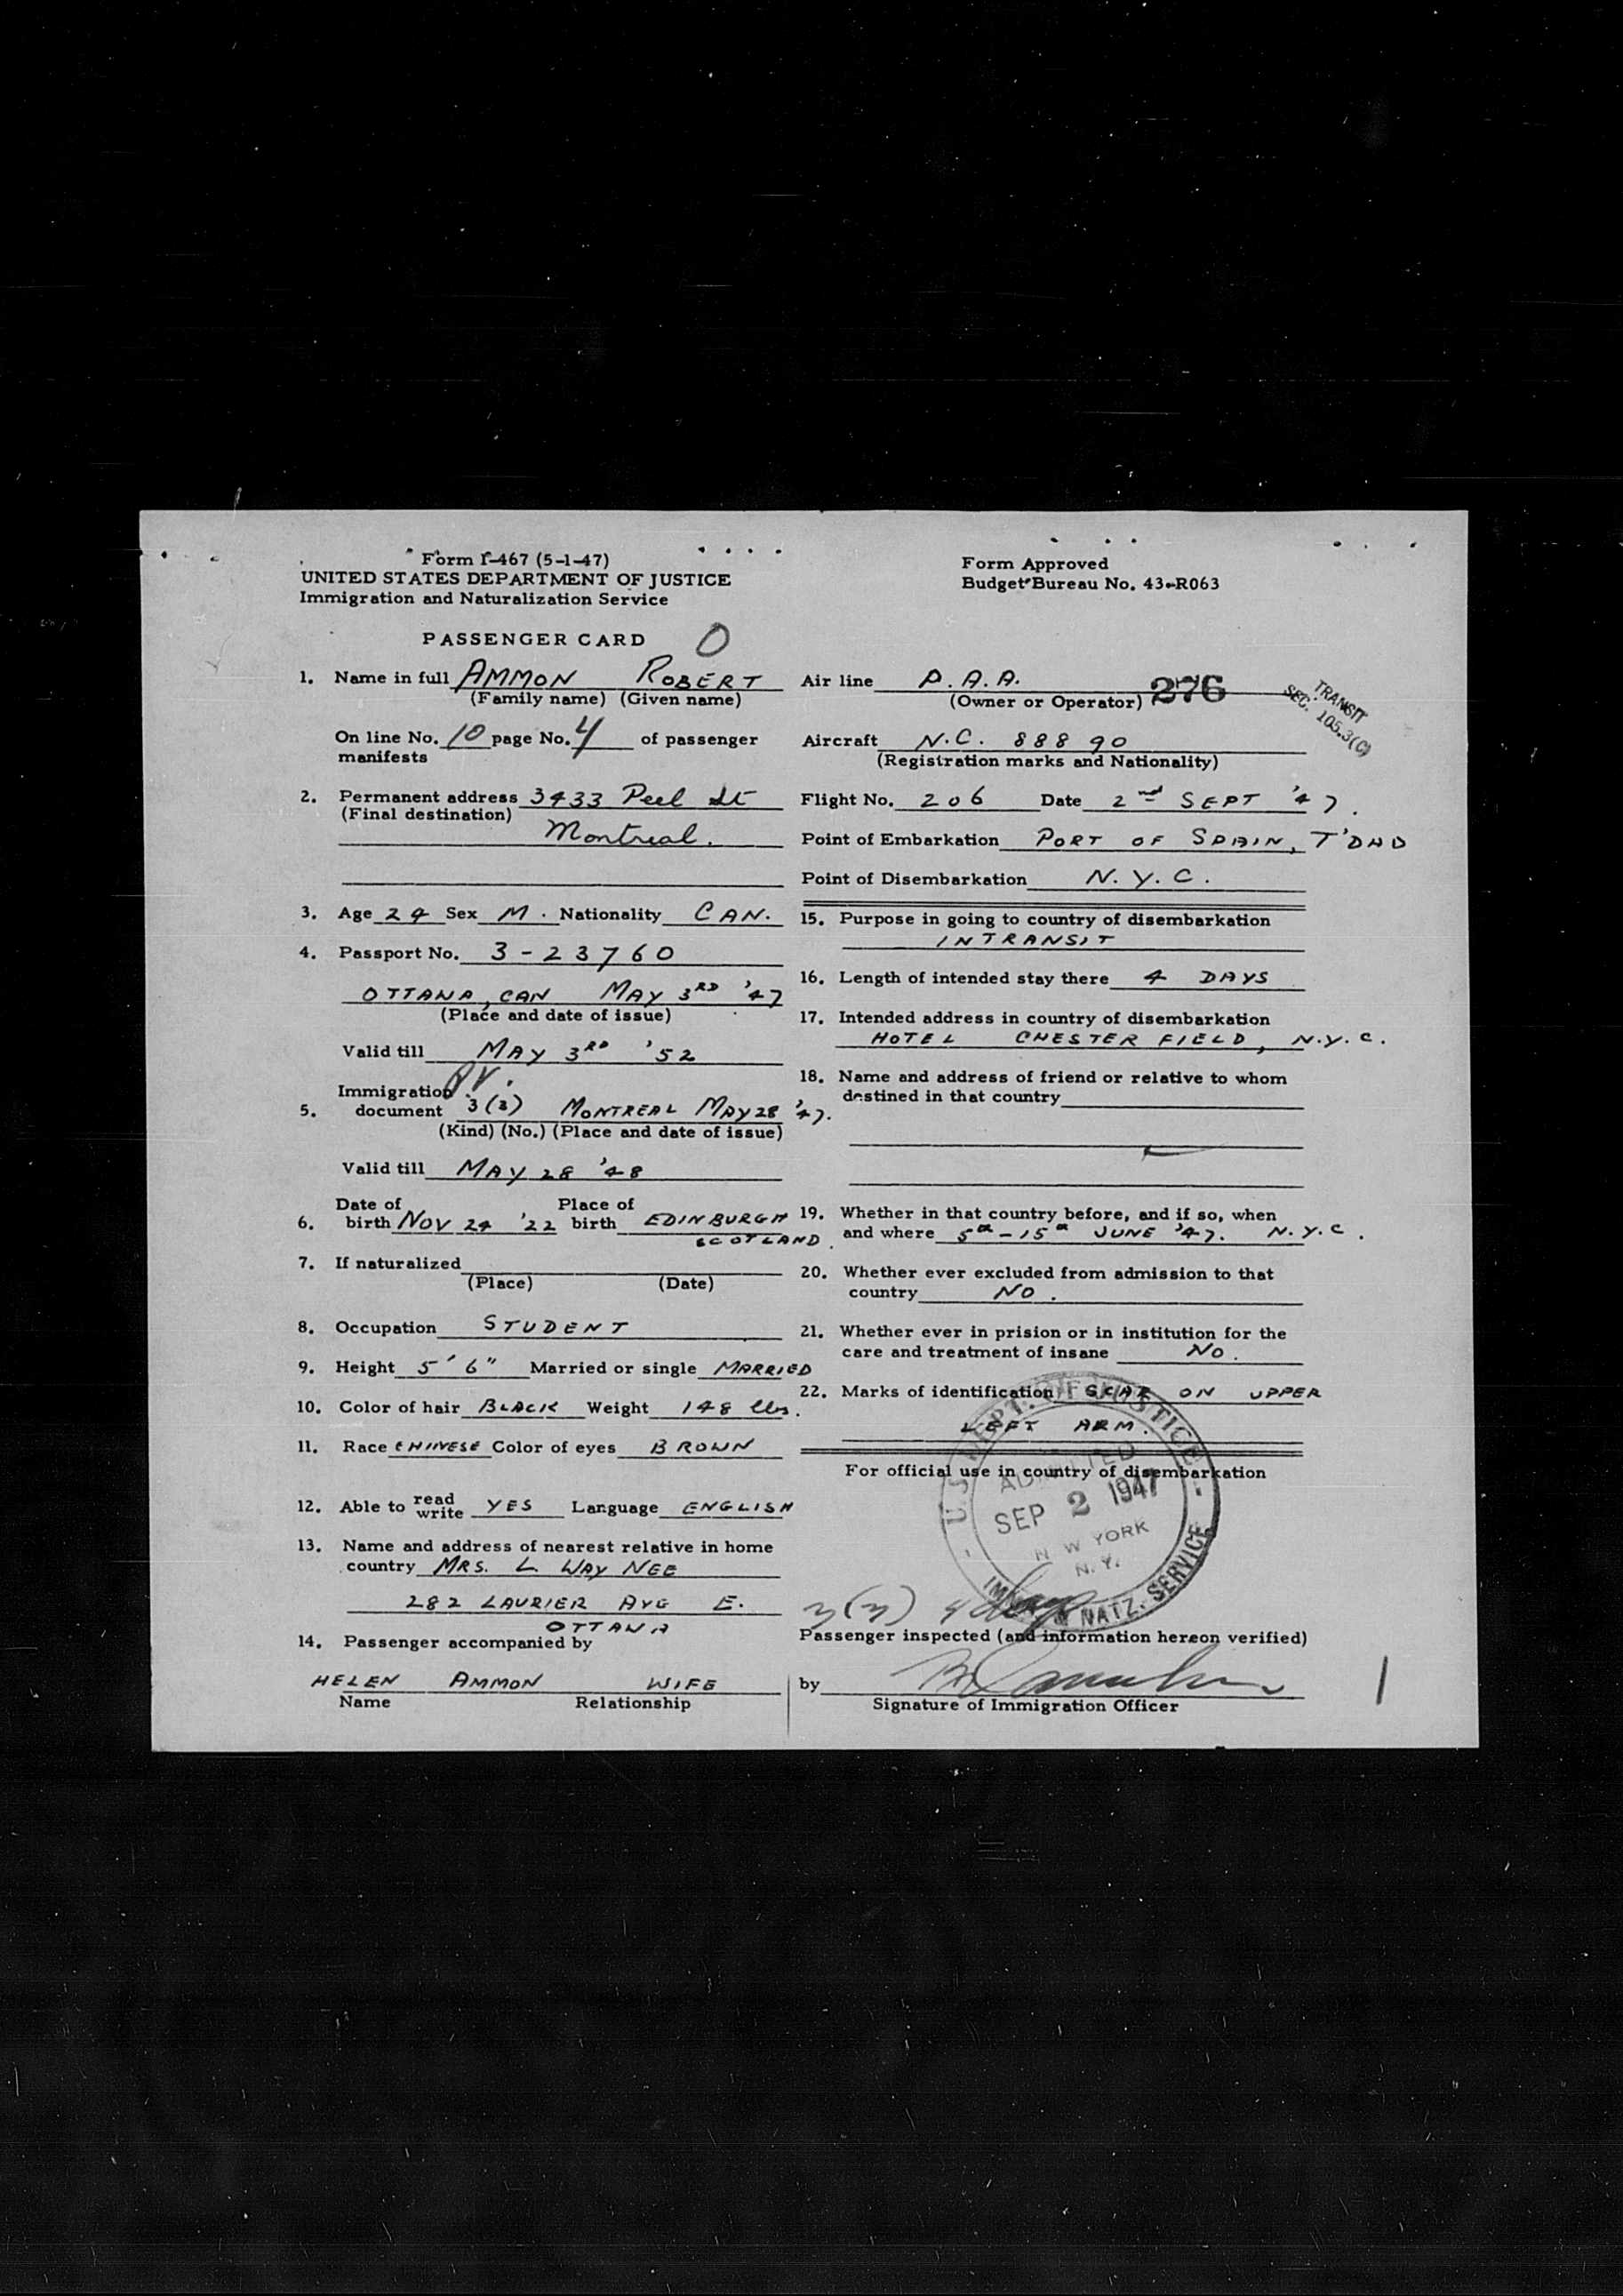 Form I-467 (5-1-47)
UNITED STATES DEPARTMENT OF JUSTICE
Immigration and Naturalization Service
Form Approved
Budget Bureau No. 43-R063
PASSENGER CARD O
1. Name in full AMMON ROBERT
(Family name) (Given name)
On line No. 10 page No. 4 of passenger
manifests
2. Permanent address 3433 Peel St
(Final destination)
Montreal.
3. Age 24 Sex M. Nationality CAN.
4. Passport No. 3-23760
OTTAWA, CAN MAY 3RD '47
(Place and date of issue)
Valid till MAY 3RD '52
Immigration
5. document 3(3) MONTREAL MAY 28 '47.
(Kind) (No.) (Place and date of issue)
Valid till MAY 28 '48
Date of Place of
6. birth NOV 24 '22 birth EDINBURGH
SCOTLAND.
7. If naturalized
(Place) (Date)
8. Occupation STUDENT
9. Height 5' 6" Married or single MARRIED
10. Color of hair BLACK Weight 148 lbs.
11. Race CHINESE Color of eyes BROWN
12. Able to read write YES Language ENGLISH
13. Name and address of nearest relative in home
country MRS. L WAY NEE
282 LAURIER AVE E.
OTTAWA
14. Passenger accompanied by
HELEN AMMON WIFE
Name Relationship
Air line P.A.A.
(Owner or Operator) 276
TRANSIT
SEC. 105.3(C)
Aircraft N.C. 88890
(Registration marks and Nationality)
Flight No. 206 Date 2nd SEPT '47.
Point of Embarkation PORT OF SPAIN, T'DAD
Point of Disembarkation N.Y.C.
15. Purpose in going to country of disembarkation
INTRANSIT
16. Length of intended stay there 4 DAYS
17. Intended address in country of disembarkation
HOTEL CHESTER FIELD, N.Y.C.
18. Name and address of friend or relative to whom
destined in that country
19. Whether in that country before, and if so, when
and where 5th - 15th JUNE '47. N.Y.C.
20. Whether ever excluded from admission to that
country NO.
21. Whether ever in prision or in institution for the
care and treatment of insane NO.
22. Marks of identification SCAR ON UPPER
LEFT ARM.
For official use in country of disembarkation
U.S. DEPT. OF JUSTICE
ADMITTED
SEP 2 1947
NEW YORK
N.Y.
NATZ. SERVICE
3(3) 4 days
Passenger inspected (and information hereon verified)
by
Signature of Immigration Officer